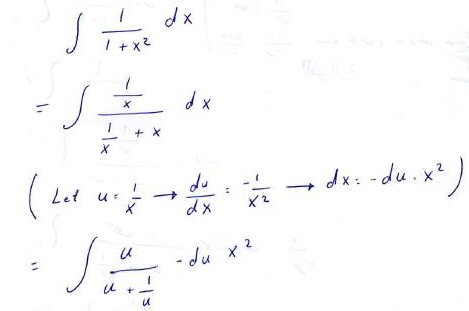 ∫ 1/(1 + x²) dx
= ∫ (1/x)/(1/x + x) dx
(Let u = 1/x → du/dx = -1/x² → dx = -du · x²)
= ∫ u/(u + 1/u) - du x²